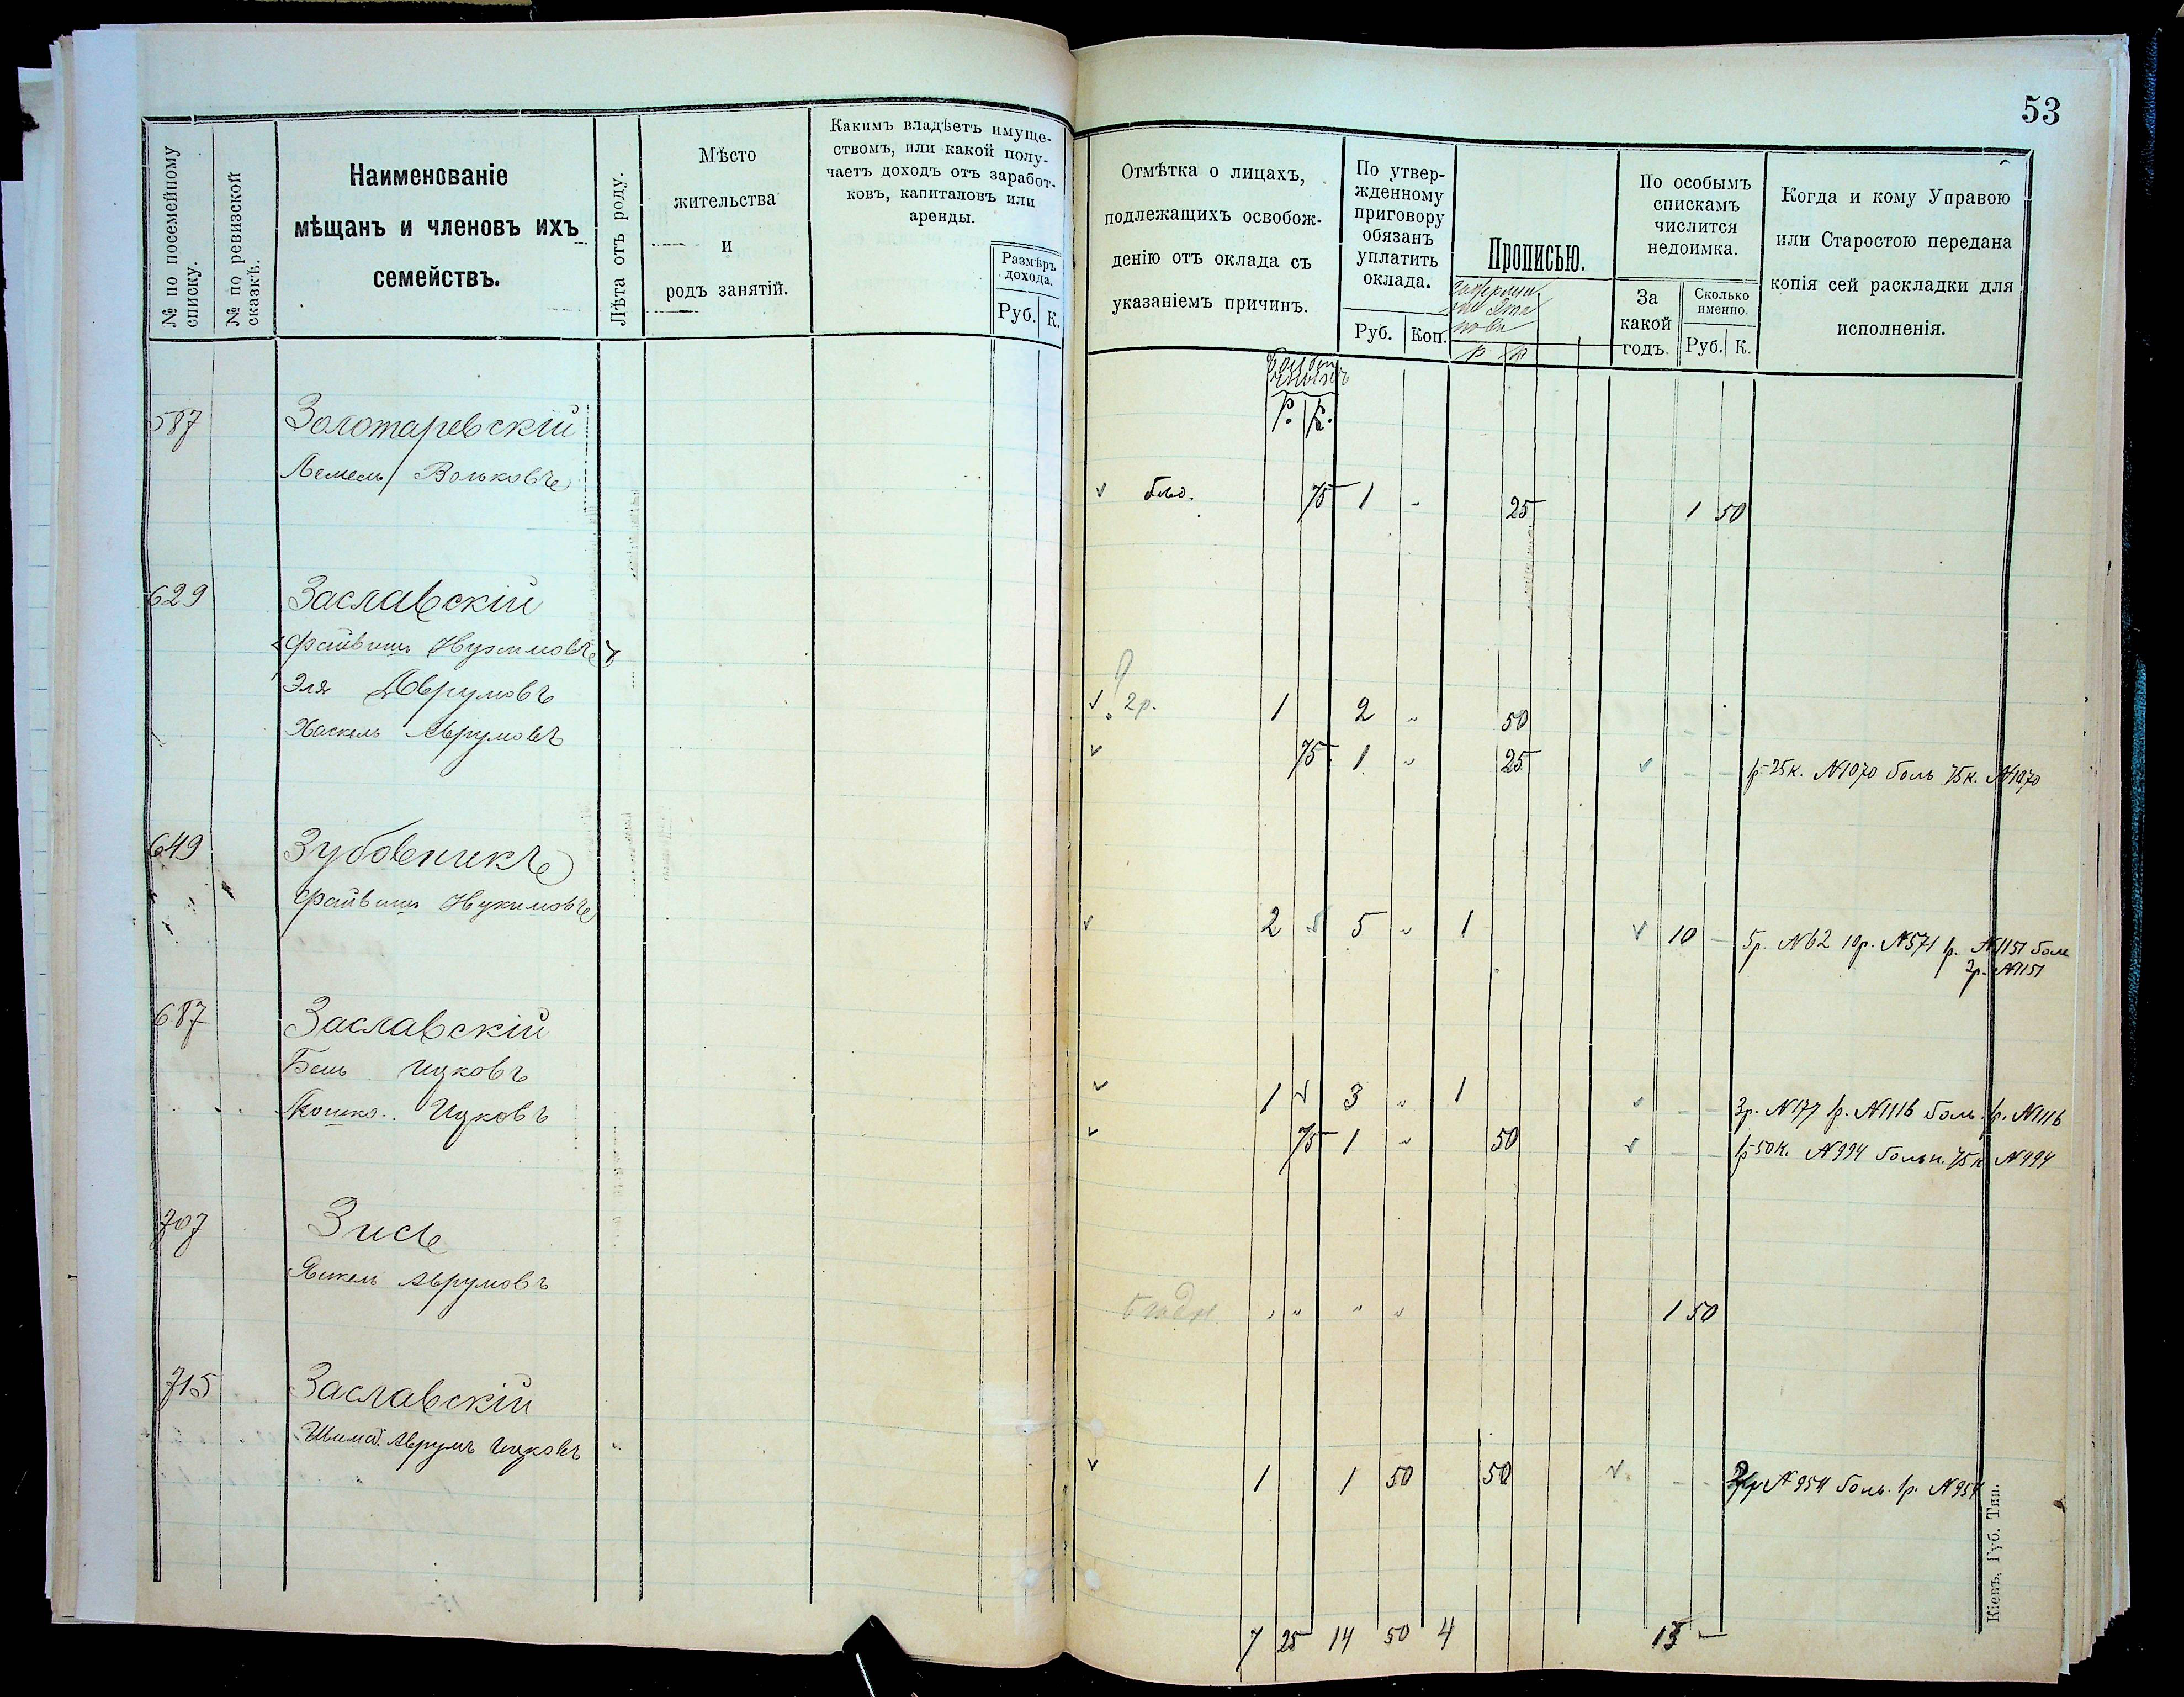 53
№ по посемейному списку.
№ по ревизской сказкѣ.
Наименованіе
мѣщанъ и членовъ ихъ
семействъ.
Лѣта отъ роду.
Мѣсто
жительства
и
родъ занятій.
Какимъ владѣетъ имуще-
ствомъ, или какой полу-
чаетъ доходъ отъ заработ-
ковъ, капиталовъ или
аренды.
Размѣръ
дохода.
Руб. К.
Отмѣтка о лицахъ,
подлежащихъ освобож-
денію отъ оклада съ
указаніемъ причинъ.
По утвер-
жденному
приговору
обязанъ
уплатить
оклада.
Руб. Коп.
Прописью.
По особымъ
спискамъ
числится
недоимка.
За
какой
годъ.
Сколько
именно.
Руб. К.
Когда и кому Управою
или Старостою передана
копія сей раскладки для
исполненія.
р. к.
587 Золотаревскій
Лемель Вольковъ 75 1 " 25 1 50
629 Заславскій
Файвишъ Нухимовъ
Эля Аврумовъ 2р. 1 2 " 50
Хаскель Аврумовъ 75 1 " 25 1р-25к. №1070 боль 75к. №1070
649 Зубовникъ
Файвишъ Нухимовъ 2 5 " 1 10 – 5р. №62 10р. №571 1р. №1151 боль
2р. №1151
687 Заславскій
Бень Ицковъ 1 3 " 1 3р. №177 1р. №1116 боль. 1р. №1116
Мошко Ицковъ 75 1 " 50 1р-50к. №994 больн. 75к №994
707 Зисъ
Янкель Аврумовъ бѣдн. " " " " 1 50
715 Заславскій
Аврумъ Ицковъ 1 1 50 50 2р №954 боль. 1р. №954
7 25 14 50 4 13 –
Кіевъ, Губ. Тип.